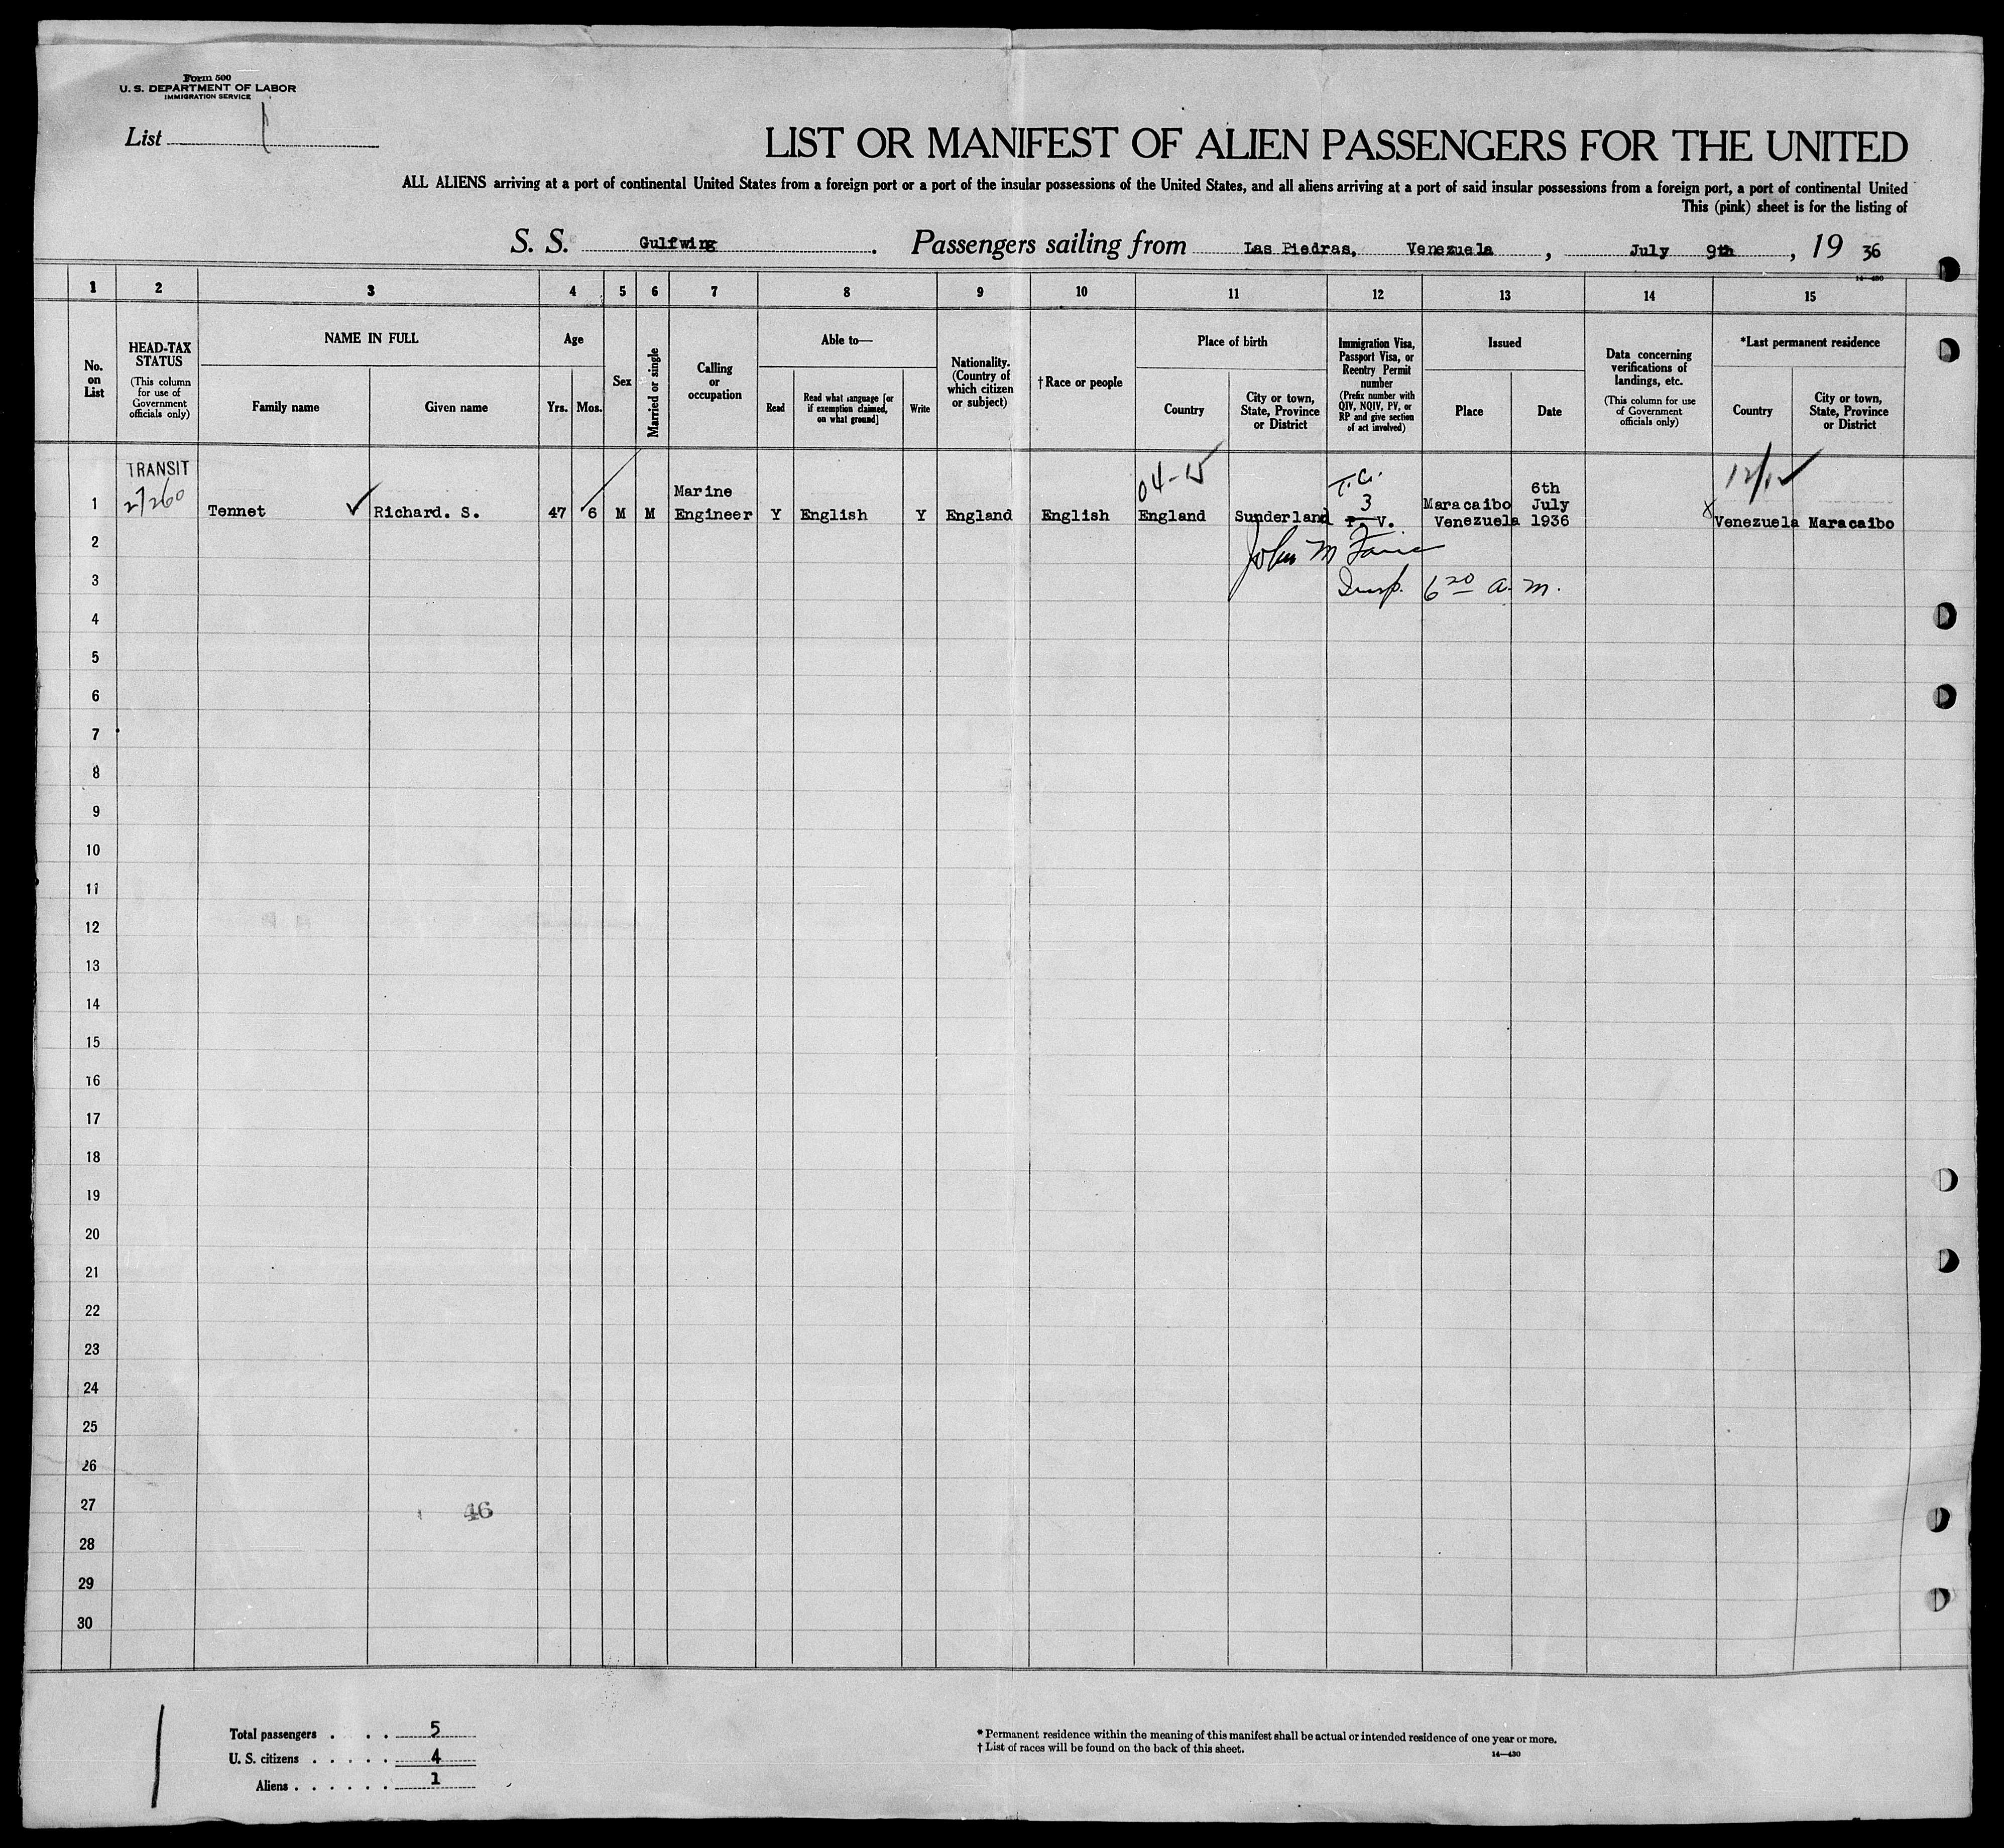 Form 500
U. S. DEPARTMENT OF LABOR
IMMIGRATION SERVICE
List 1
LIST OR MANIFEST OF ALIEN PASSENGERS FOR THE UNITED
ALL ALIENS arriving at a port of continental United States from a foreign port or a port of the insular possessions of the United States, and all aliens arriving at a port of said insular possessions from a foreign port, a port of continental United
This (pink) sheet is for the listing of
S. S. Gulfwing. Passengers sailing from Las Piedras, Venezuela, July 9th, 19 36
14—430
1 2 3 4 5 6 7 8 9 10 11 12 13 14 15
No. on List
HEAD-TAX STATUS
(This column for use of Government officials only)
NAME IN FULL
Family name
Given name
Age
Yrs. Mos.
Sex
Married or single
Calling or occupation
Able to—
Read
Read what language [or if exemption claimed, on what ground]
Write
Nationality. (Country of which citizen or subject)
†Race or people
Place of birth
Country
City or town, State, Province or District
Immigration Visa, Passport Visa, or Reentry Permit number
(Prefix number with QIV, NQIV, PV, or RP and give section of act involved)
Issued
Place
Date
Data concerning verifications of landings, etc.
(This column for use of Government officials only)
*Last permanent residence
Country
City or town, State, Province or District
TRANSIT
04-15
T.C.
12/12
1 27260 Tennet Richard. S. 47 6 M M Marine Engineer Y English Y England English England Sunderland 3 P. V. Maracaibo Venezuela 6th July 1936 Venezuela Maracaibo
2 John M
3 Insp. 6 20 a. m.
4
5
6
7
8
9
10
11
12
13
14
15
16
17
18
19
20
21
22
23
24
25
26
27 46
28
29
30
Total passengers . . . . 5
U. S. citizens . . . . . 4
Aliens . . . . . . 1
* Permanent residence within the meaning of this manifest shall be actual or intended residence of one year or more.
† List of races will be found on the back of this sheet.
14—430